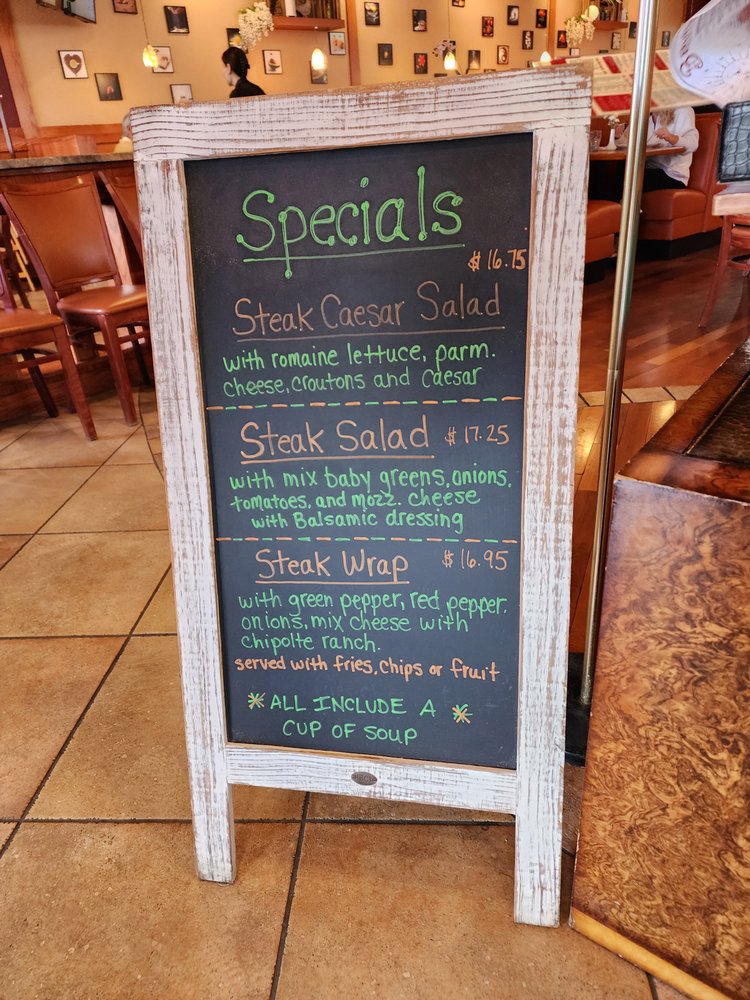 Specials
$ 16.75
Steak Caesar Salad
with romaine lettuce, parm.
cheese, croutons and caesar
Steak Salad $ 17.25
with mix baby greens, onions,
tomatoes, and mozz. cheese
with Balsamic dressing
Steak Wrap $ 16.95
with green pepper, red pepper,
onions, mix cheese with
chipolte ranch.
served with fries, chips or fruit
* ALL INCLUDE A *
CUP OF SOUP